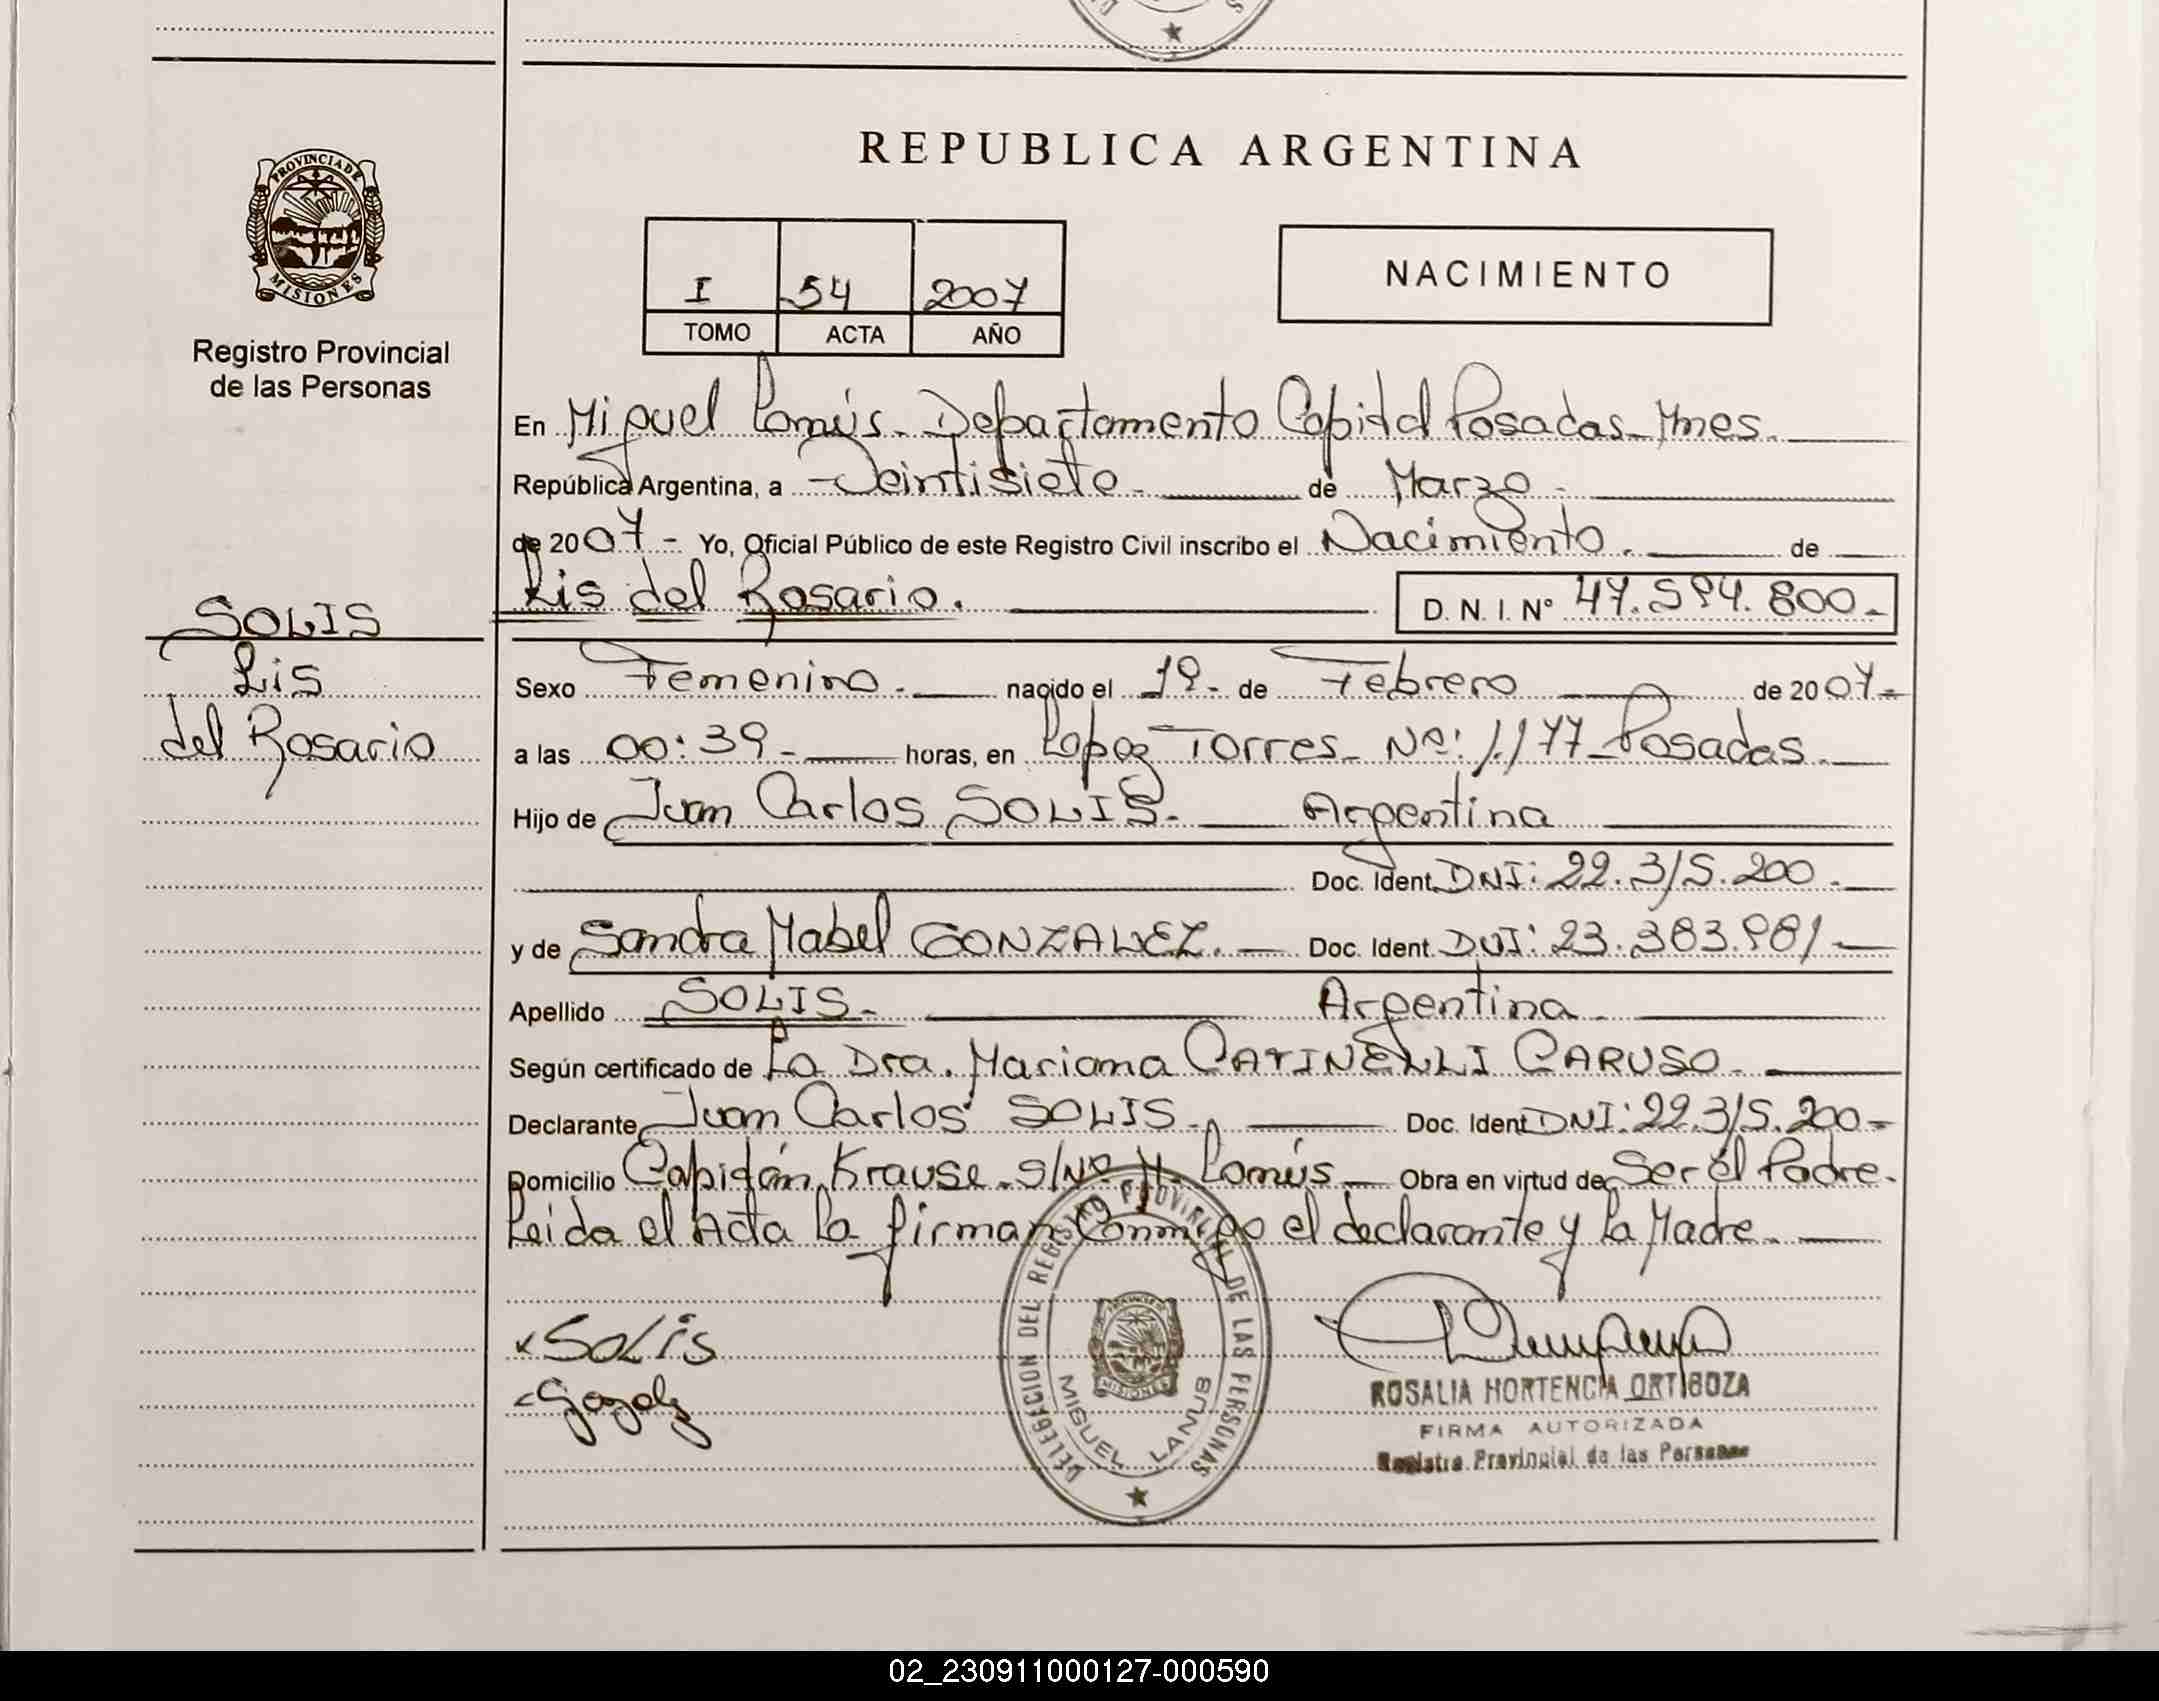 REPUBLICA ARGENTINA
PROVINCIA DE
MISIONES
Registro Provincial
de las Personas
I 54 2007
TOMO ACTA AÑO
NACIMIENTO
En Miguel Lanús. Departamento Capital Posadas - Mnes.
República Argentina, a Veintisiete - de Marzo -
de 2007 - Yo, Oficial Público de este Registro Civil inscribo el Nacimiento. de
Lis del Rosario. D. N. I. Nº 47.594.800.-
SOLIS
Lis
del Rosario
Sexo Femenino. nacido el 19 - de Febrero de 2007 -
a las 00:39 - horas, en Lopez Torres - Nº: 1.177 - Posadas.
Hijo de Juan Carlos SOLIS. Argentina
Doc. Ident. DNI: 22.315.200 -
y de Sandra Mabel GONZALEZ. Doc. Ident. DNI: 23.383.981 -
Apellido SOLIS - Argentina.
Según certificado de La Dra. Mariana CATINELLI CARUSO -
Declarante Juan Carlos SOLIS - Doc. Ident DNI: 22.315.200 -
Domicilio Capitán Krause - s/Nº - M. Lanús - Obra en virtud de Ser el Padre.
Leida el Acta la firman Conmigo el declarante y la Madre.
DELEGACION DEL REGISTRO PROVINCIAL DE LAS PERSONAS
MIGUEL LANUS
PROVINCIA DE
MISIONES
SOLIS
ROSALIA HORTENCIA ORTIGOZA
FIRMA AUTORIZADA
Registro Provincial de las Personas
02_230911000127-000590